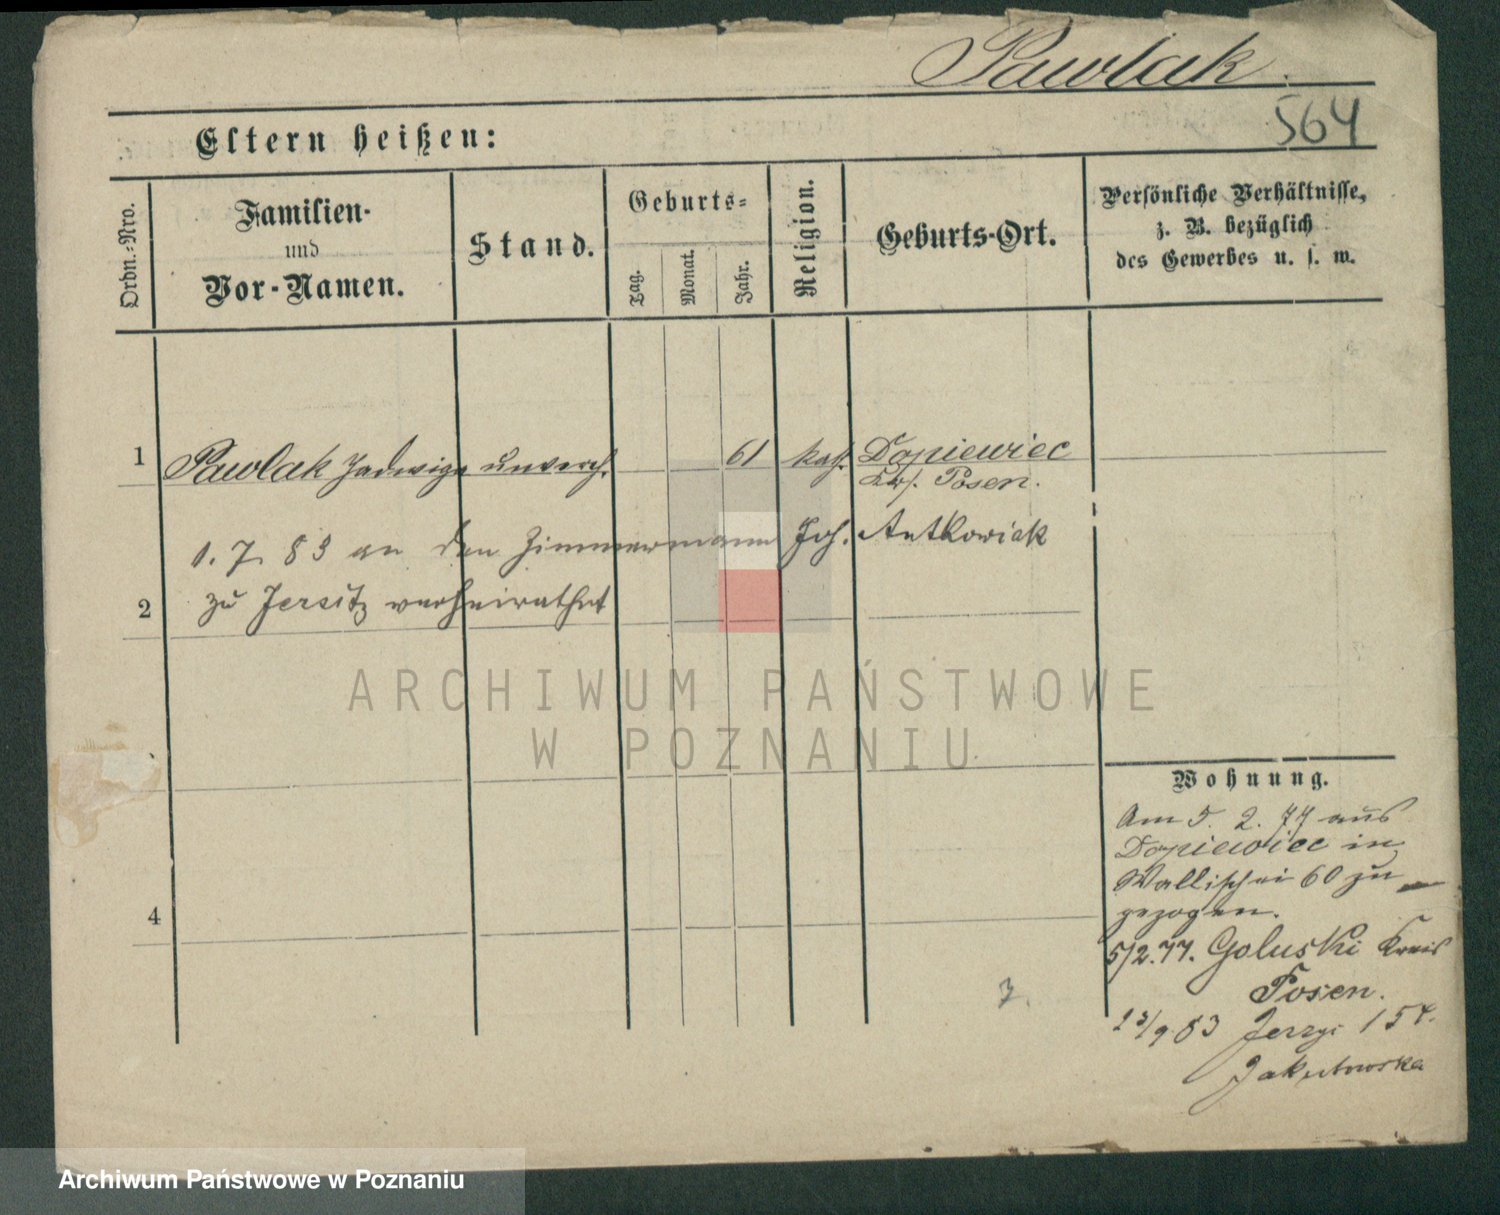 Pawlak.
564
Eltern heißen:
Ordn.-Nro.
Familien-
und
Vor-Namen.
Stand.
Geburts-
Tag.
Monat.
Jahr.
Religion.
Geburts-Ort.
Persönliche Verhältnisse,
z. B. bezüglich
des Gewerbes u. s. w.
1 Pawlak Jadwiga unverh. 61 kath. Dopiewiec
Krs. Posen.
1. 7. 83 an den Zimmermann Joh. Antkowiak
2 zu Jersitz verheirathet
4
Wohnung.
Am 5. 2. 77 aus
Dopiewiec in
Wallischei 60 zu
gezogen.
5/2.77. Goluski Kreis
Posen.
/9 83 Jerzyc 154.
Jakubowska
ARCHIWUM PAŃSTWOWE
W POZNANIU
Archiwum Państwowe w Poznaniu